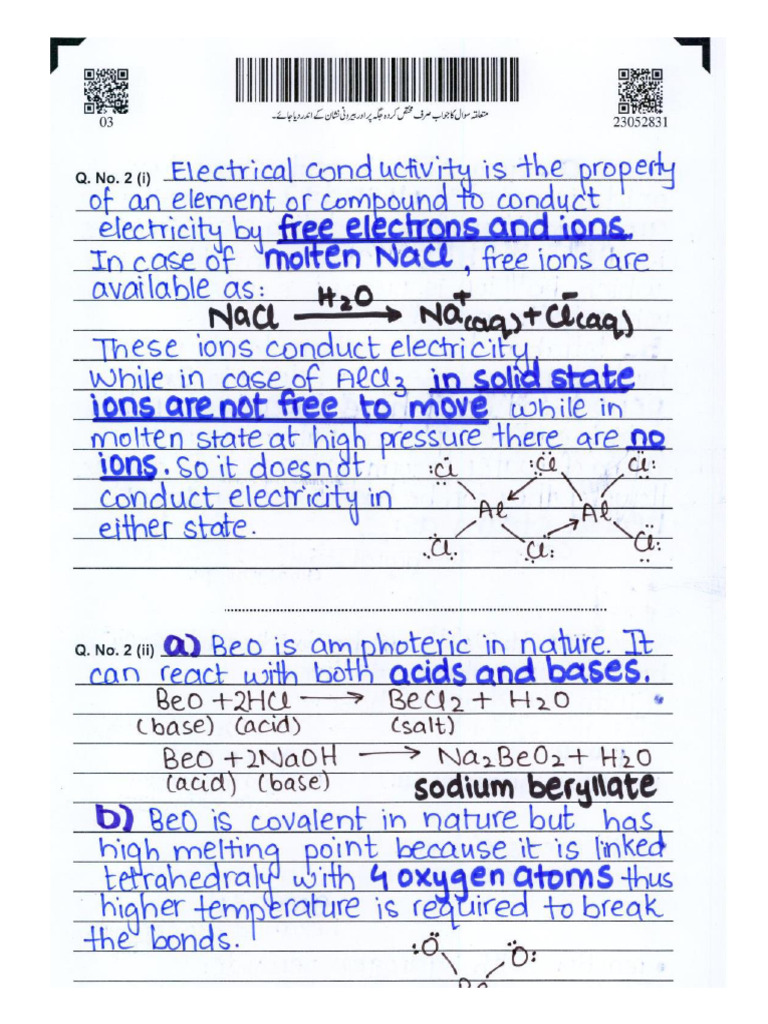 متعلقہ سوال کا جواب صرف مختص کردہ جگہ پر اور بیرونی نشان کے اندر دیا جائے۔
03
23052831
Q. No. 2 (i) Electrical conductivity is the property
of an element or compound to conduct
electricity by free electrons and ions.
In case of molten NaCl, free ions are
available as:
NaCl —H₂O→ Na⁺(aq) + Cl⁻(aq)
These ions conduct electricity.
While in case of AlCl₃ in solid state
ions are not free to move while in
molten state at high pressure there are no
ions. So it does not
conduct electricity in
either state.
:Cl :Cl Cl:
Al Al
Cl. Cl: Cl:
Q. No. 2 (ii) a) BeO is amphoteric in nature. It
can react with both acids and bases.
BeO + 2HCl → BeCl₂ + H₂O
(base) (acid) (salt)
BeO + 2NaOH → Na₂BeO₂ + H₂O
(acid) (base) sodium beryllate
b) BeO is covalent in nature but has
high melting point because it is linked
tetrahedraly with 4 oxygen atoms thus
higher temperature is required to break
the bonds.
:O O: